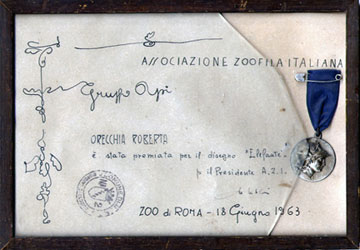 ASSOCIAZIONE ZOOFILA ITALIANA
Gruppo Api
ORECCHIA ROBERTA
è stata premiata per il disegno "Elefante"
p il Presidente A.Z.I.
ZOO di ROMA - 18 Giugno 1963